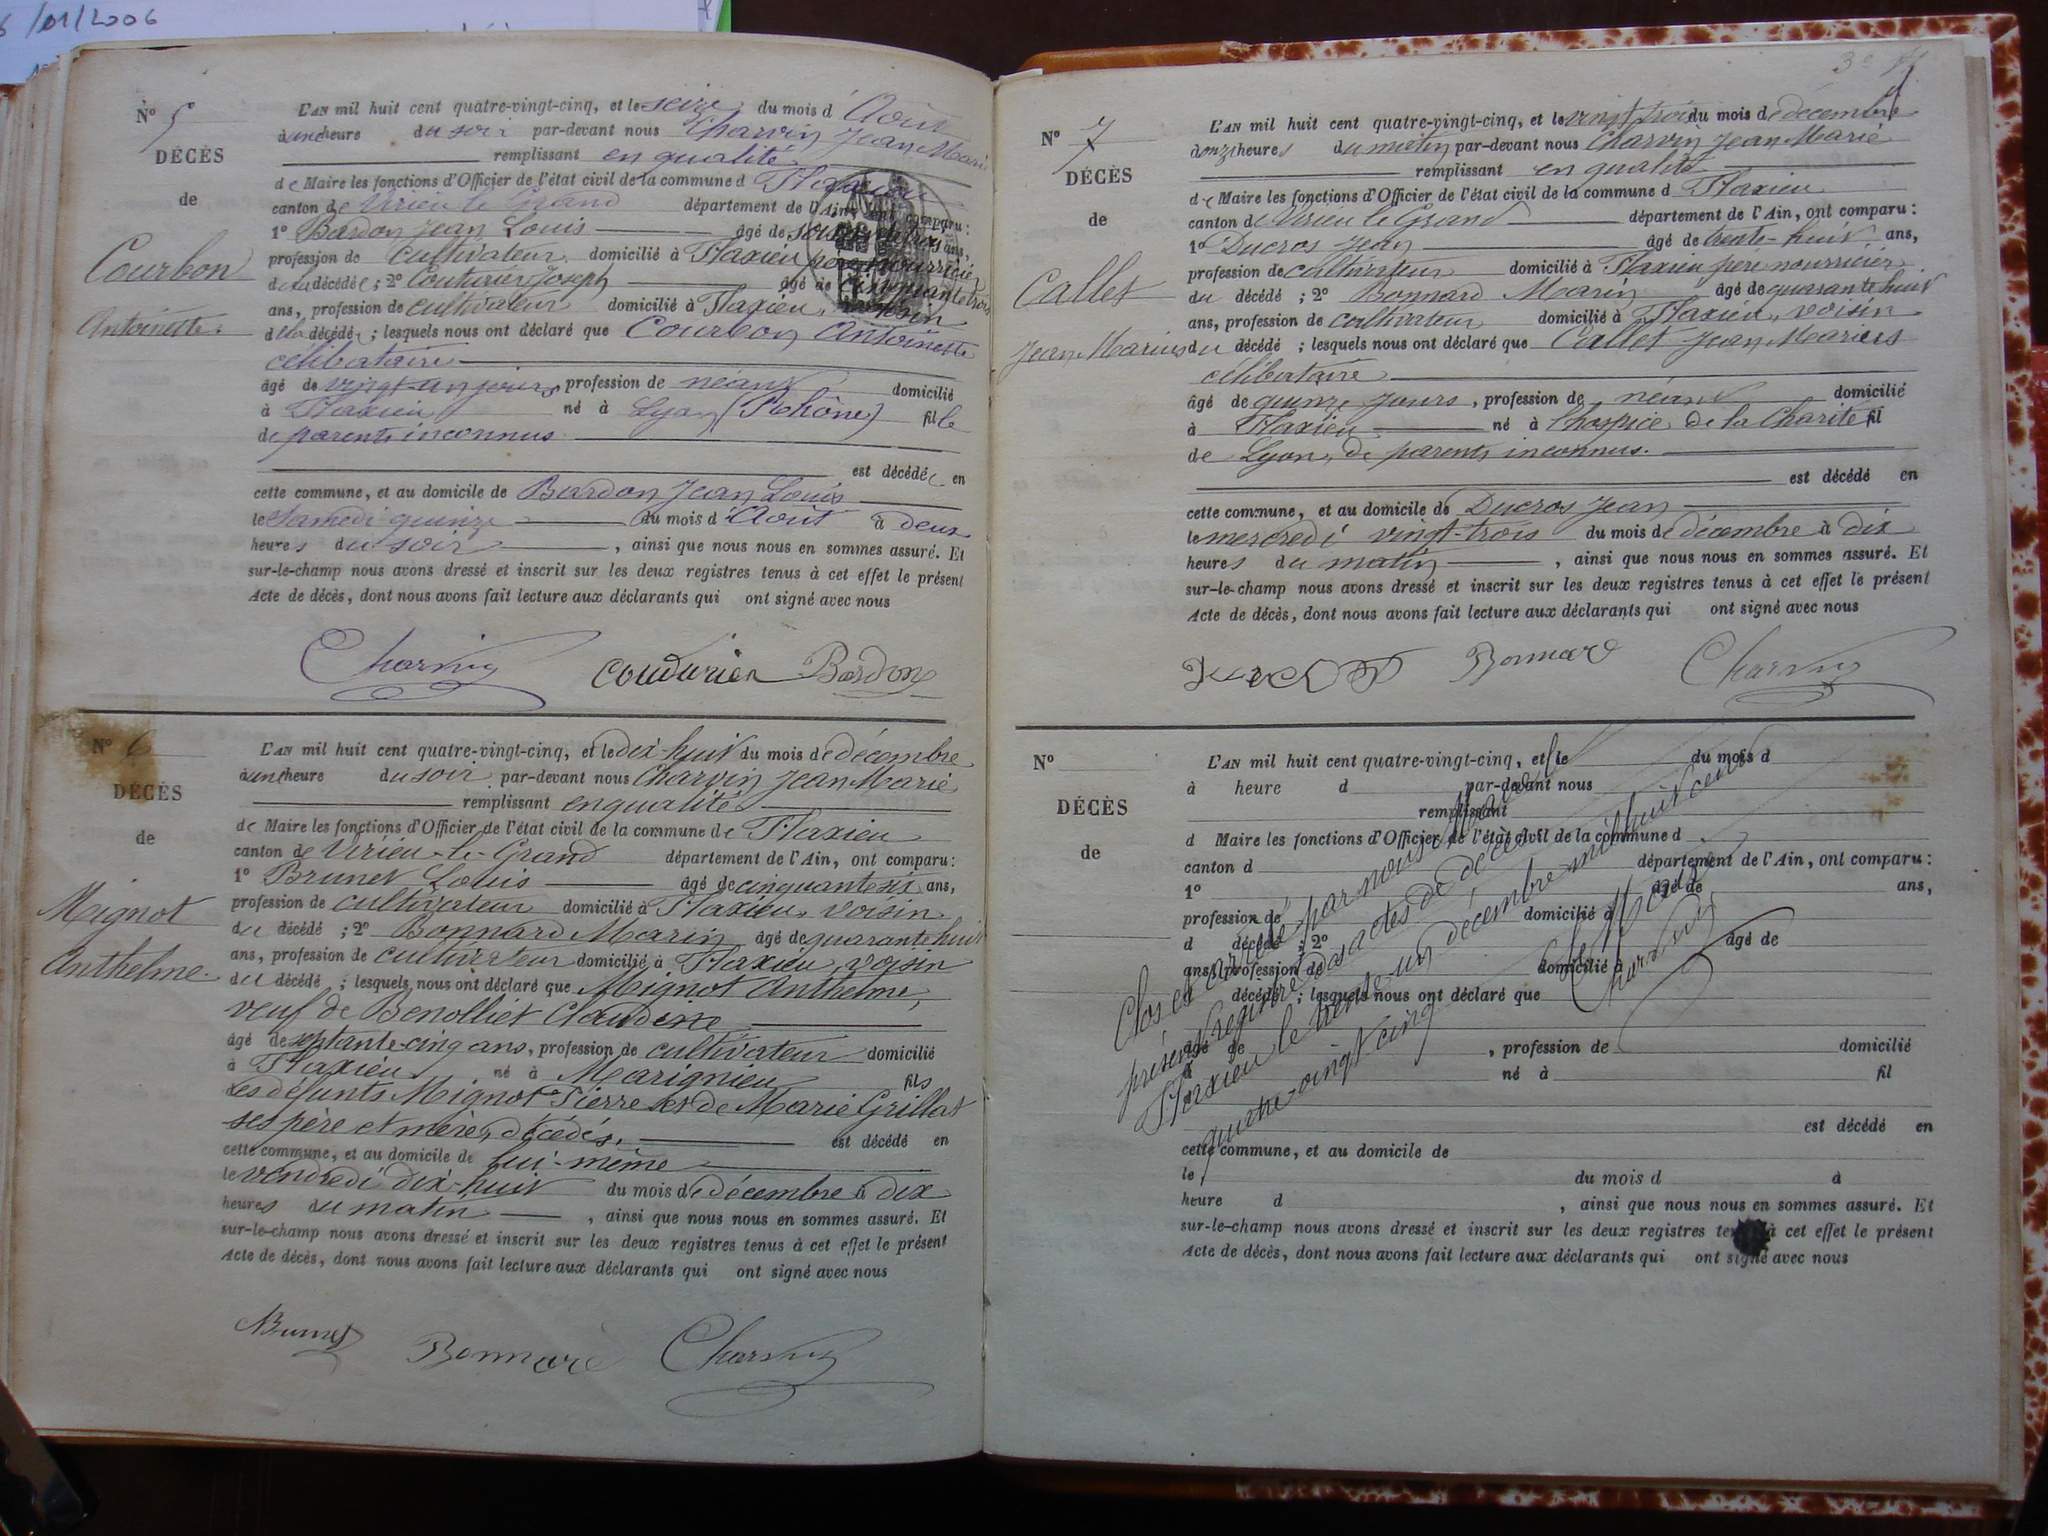 /01/2006
Nº 5
DÉCÈS
de
Courbon
Antoinette
L'AN mil huit cent quatre-vingt-cinq, et le seize du mois d'Août
à une heure du soir par-devant nous Charvin Jean Marie
remplissant en qualité
de Maire les fonctions d'Officier de l'état civil de la commune d Flaxieu
canton de Virieu le Grand département de l'Ain, ont comparu :
1º Bardon Jean Louis âgé de ans,
profession de cultivateur domicilié à Flaxieu père nourricier
de la décédée ; 2º Couturier Joseph âgé de cinquante trois
ans, profession de cultivateur domicilié à Flaxieu, voisin
de la décédée ; lesquels nous ont déclaré que Courbon Antoinette
célibataire
âgé de vingt-un jours profession de néant domicilié
à Flaxieu né à Lyon (Rhône) fille
de parents inconnus
est décédée en
cette commune, et au domicile de Bardon Jean Louis
le Samedi quinze du mois d'Août à deux
heures du soir, ainsi que nous nous en sommes assuré. Et
sur-le-champ nous avons dressé et inscrit sur les deux registres tenus à cet effet le présent
Acte de décès, dont nous avons fait lecture aux déclarants qui ont signé avec nous
Charvin Coudurier Bardon
Nº 6
DÉCÈS
de
Mignot
Anthelme
L'AN mil huit cent quatre-vingt-cinq, et le dix-huit du mois de décembre
à une heure du soir par-devant nous Charvin Jean Marie
remplissant en qualité
de Maire les fonctions d'Officier de l'état civil de la commune de Flaxieu
canton de Virieu-le-Grand département de l'Ain, ont comparu :
1º Brunet Louis âgé de cinquante six ans,
profession de cultivateur domicilié à Flaxieu, voisin
du décédé ; 2º Bonnard Marin âgé de quarante huit
ans, profession de cultivateur domicilié à Flaxieu, voisin
du décédé ; lesquels nous ont déclaré que Mignot Anthelme,
veuf de Benolliet Claudine
âgé de septante-cinq ans, profession de cultivateur domicilié
à Flaxieu né à Marignieu fils
des défunts Mignot Pierre et de Marie Grillat
ses père et mère, décédés. est décédé en
cette commune, et au domicile de lui-même
le vendredi dix-huit du mois de décembre à dix
heures du matin, ainsi que nous nous en sommes assuré. Et
sur-le-champ nous avons dressé et inscrit sur les deux registres tenus à cet effet le présent
Acte de décès, dont nous avons fait lecture aux déclarants qui ont signé avec nous
Brunet Bonnard Charvin
Nº 7
DÉCÈS
de
Callet
Jean Marius
L'AN mil huit cent quatre-vingt-cinq, et le vingt trois du mois de décembre
à onze heures du matin par-devant nous Charvin Jean Marie
remplissant en qualité
de Maire les fonctions d'Officier de l'état civil de la commune d Flaxieu
canton de Virieu le Grand département de l'Ain, ont comparu :
1º Ducros Jean âgé de trente-huit ans,
profession de cultivateur domicilié à Flaxieu père nourricier
du décédé ; 2º Bonnard Marin âgé de quarante huit
ans, profession de cultivateur domicilié à Flaxieu, voisin
du décédé ; lesquels nous ont déclaré que Callet Jean Marius
célibataire
âgé de quinze jours, profession de néant domicilié
à Flaxieu né à l'hospice de la Charité fil
de Lyon, de parents inconnus.
est décédé en
cette commune, et au domicile de Ducros Jean
le mercredi vingt-trois du mois de décembre à dix
heures du matin, ainsi que nous nous en sommes assuré. Et
sur-le-champ nous avons dressé et inscrit sur les deux registres tenus à cet effet le présent
Acte de décès, dont nous avons fait lecture aux déclarants qui ont signé avec nous
Bonnard Charvin
Nº
DÉCÈS
de
L'AN mil huit cent quatre-vingt-cinq, et le du mois d
à heure d par-devant nous
remplissant
d Maire les fonctions d'Officier de l'état civil de la commune d
canton d département de l'Ain, ont comparu :
1º âgé de ans,
profession de domicilié à
d décédé ; 2º âgé de
ans, profession de domicilié à
d décédé ; lesquels nous ont déclaré que
âgé de, profession de domicilié
à né à fil
est décédé en
cette commune, et au domicile de
le du mois d à
heure d, ainsi que nous nous en sommes assuré. Et
sur-le-champ nous avons dressé et inscrit sur les deux registres tenus à cet effet le présent
Acte de décès, dont nous avons fait lecture aux déclarants qui ont signé avec nous
Clos et arrêté par nous Maire le
présent registre des actes de décès
Flaxieu le trente-un décembre mil huit cent
quatre-vingt cinq
Le Maire
Charvin